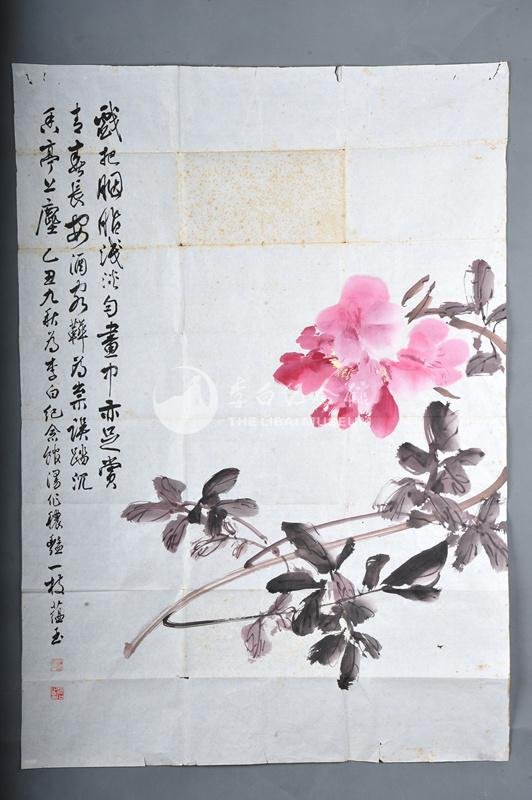 戲把胭脂淺淡勻畫中亦足賞
青春長安酒客鞾為祟誤踏沉
香亭上塵 乙丑九秋為李白紀念館漫作穠豔一枝 蘊玉
李白纪念馆
THE LIBAI MUSEUM